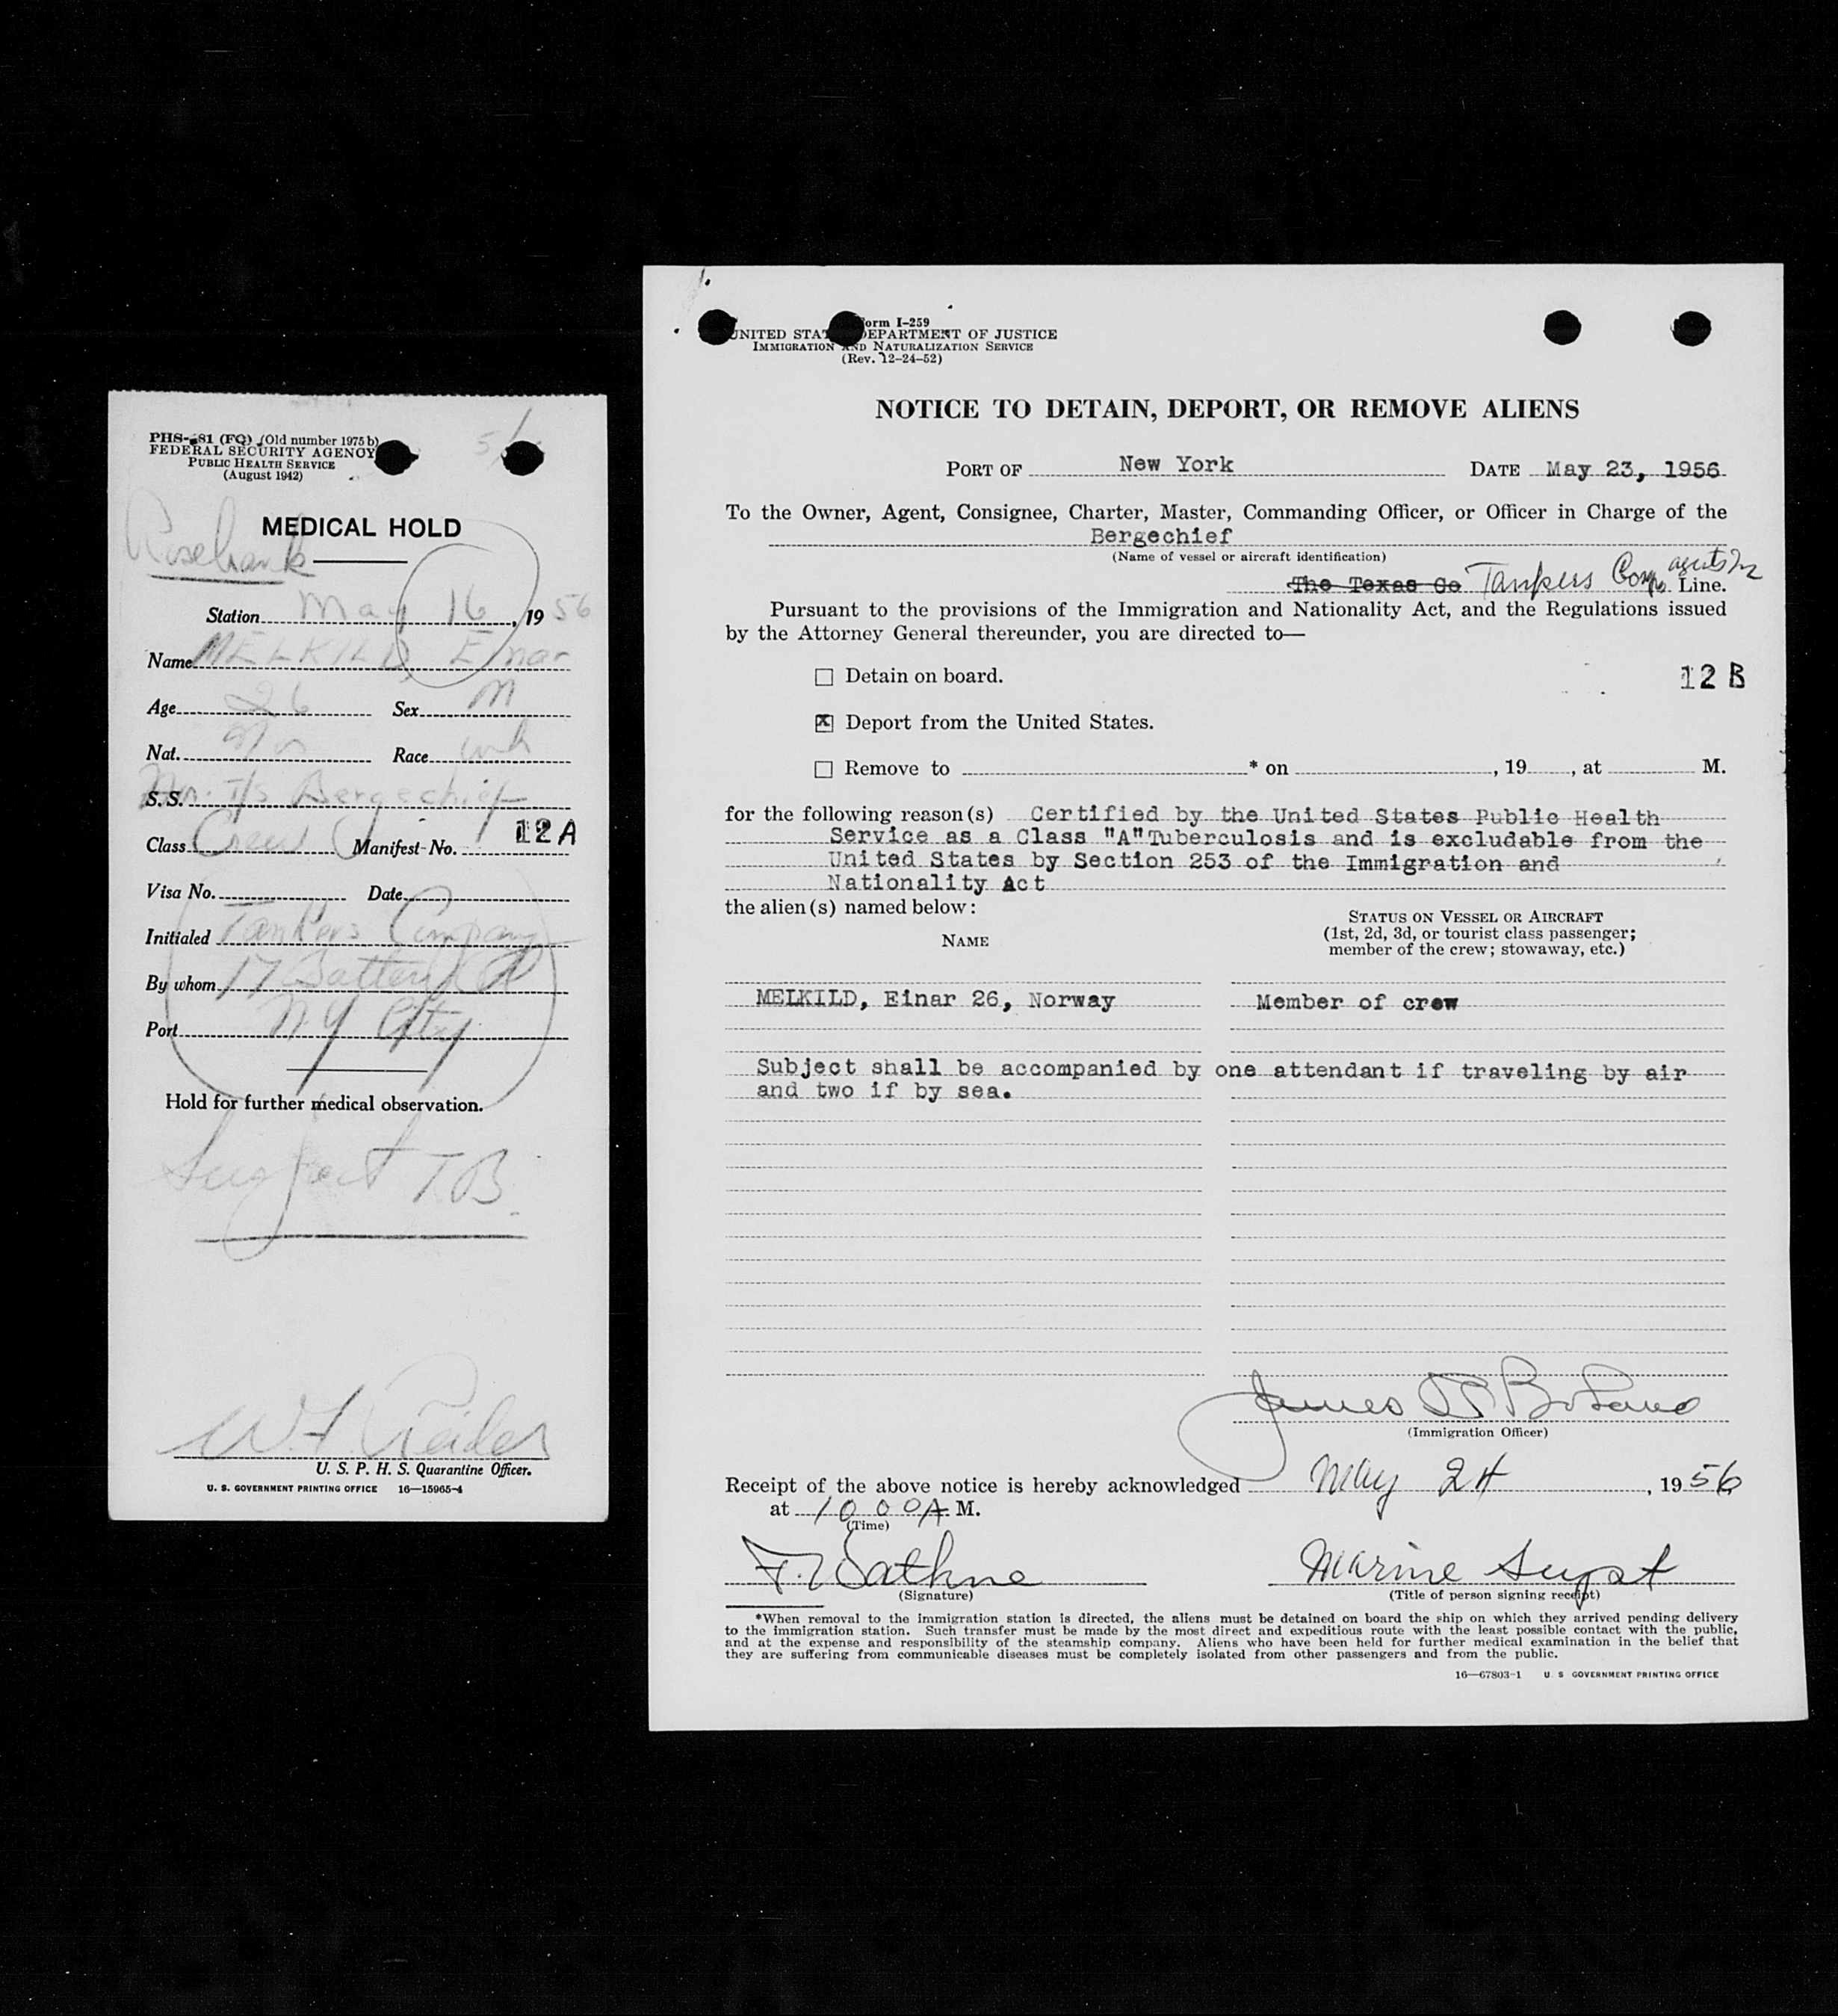 PHS-681 (FQ) (Old number 1975 b)
FEDERAL SECURITY AGENCY
PUBLIC HEALTH SERVICE
(August 1942)
MEDICAL HOLD
Rosebank
Station May 16, 19 56
Name MELKILD Einar
Age 26 Sex M
Nat. Nor Race wh
S. S. Nor. T/S Bergechief
Class Crew Manifest No. 12 A
Visa No. Date
Initialed Tankers Company
By whom 17 Battery Pl
Port N Y City
Hold for further medical observation.
Suspect T.B.
U. S. P. H. S. Quarantine Officer.
U. S. GOVERNMENT PRINTING OFFICE 16—15965-4
Form I-259
UNITED STATES DEPARTMENT OF JUSTICE
IMMIGRATION AND NATURALIZATION SERVICE
(Rev. 12-24-52)
NOTICE TO DETAIN, DEPORT, OR REMOVE ALIENS
PORT OF New York DATE May 23, 1956
To the Owner, Agent, Consignee, Charter, Master, Commanding Officer, or Officer in Charge of the
Bergechief
(Name of vessel or aircraft identification)
The Texas Co Tankers Comp. agents Line.
Pursuant to the provisions of the Immigration and Nationality Act, and the Regulations issued
by the Attorney General thereunder, you are directed to—
Detain on board.
12 B
x Deport from the United States.
Remove to * on , 19 , at M.
for the following reason(s) Certified by the United States Public Health
Service as a Class "A"Tuberculosis and is excludable from the
United States by Section 253 of the Immigration and
Nationality Act
the alien(s) named below:
NAME
STATUS ON VESSEL OR AIRCRAFT
(1st, 2d, 3d, or tourist class passenger;
member of the crew; stowaway, etc.)
MELKILD, Einar 26, Norway Member of crew
Subject shall be accompanied by one attendant if traveling by air
and two if by sea.
(Immigration Officer)
Receipt of the above notice is hereby acknowledged May 24, 1956
at 10 00 A M.
(Time)
F. Wathne Marine Supt
(Signature) (Title of person signing receipt)
*When removal to the immigration station is directed, the aliens must be detained on board the ship on which they arrived pending delivery
to the immigration station. Such transfer must be made by the most direct and expeditious route with the least possible contact with the public,
and at the expense and responsibility of the steamship company. Aliens who have been held for further medical examination in the belief that
they are suffering from communicable diseases must be completely isolated from other passengers and from the public.
16—67803-1 U. S. GOVERNMENT PRINTING OFFICE